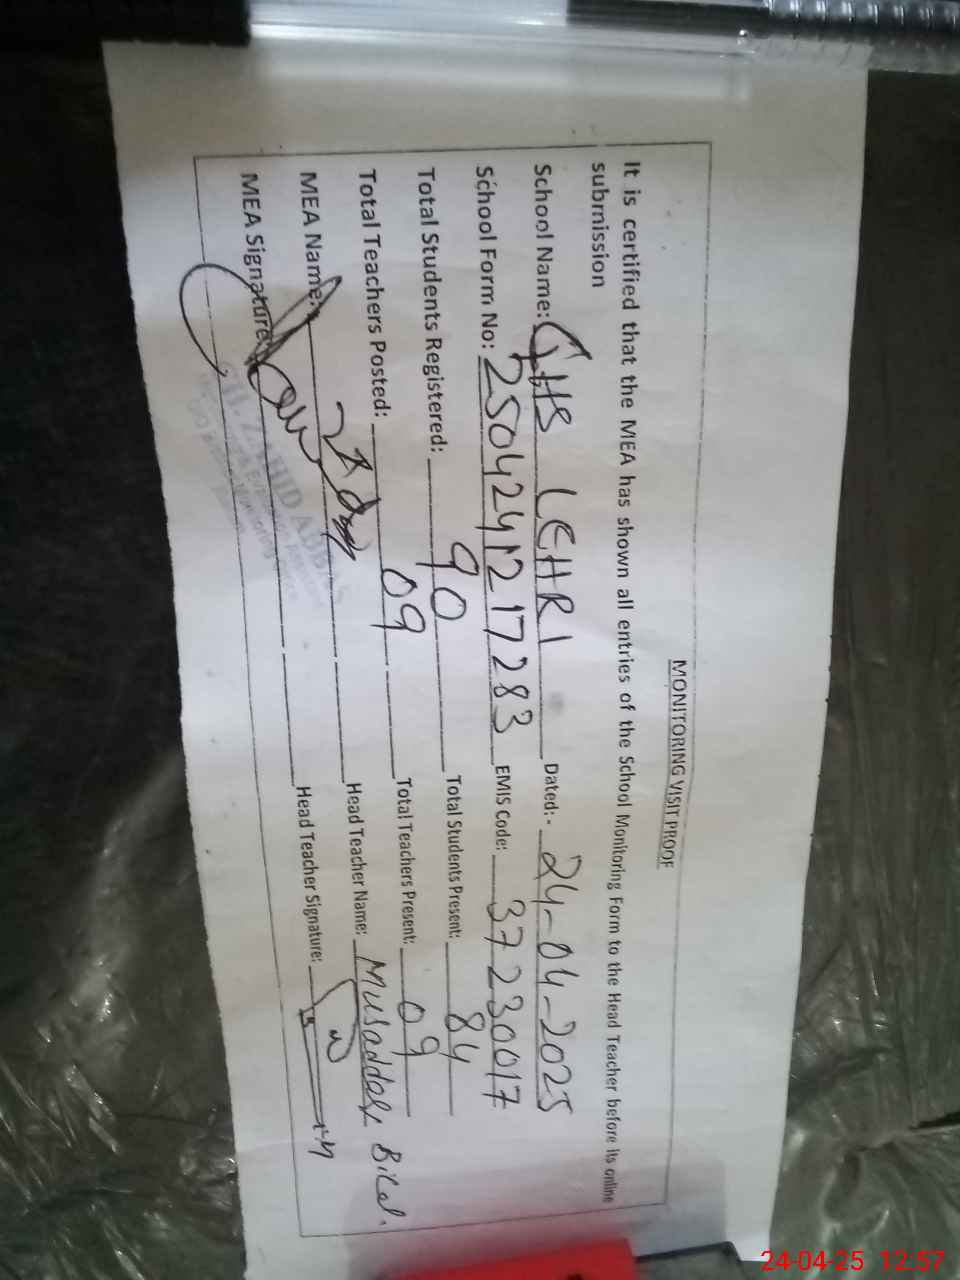 MONITORING VISIT PROOF
It is certified that the MEA has shown all entries of the School Monitoring Form to the Head Teacher before its online
submission
School Name: GHS LEHRI Dated:- 24-04-2025
School Form No: 2504241217283 EMIS Code: 37230017
Total Students Registered: 90 Total Students Present: 84
Total Teachers Posted: 09 Total Teachers Present: 09
MEA Name: Head Teacher Name: Musaddaq Bilal.
MEA Signature: Head Teacher Signature:
ZAHID ABBAS
24-04-25 12:57